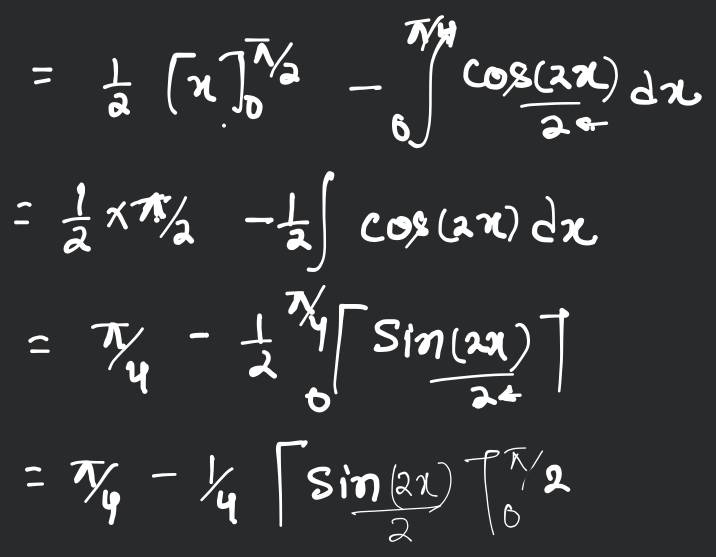 = 1/2 [x]₀^π/2 - ∫₀^π/4 cos(2x)/2 dx
= 1/2 × π/2 - 1/2 ∫ cos(2x) dx
= π/4 - 1/2 ₀^π/4 [sin(2x)/2]
= π/4 - 1/4 [sin(2x)/2]₀^π/2